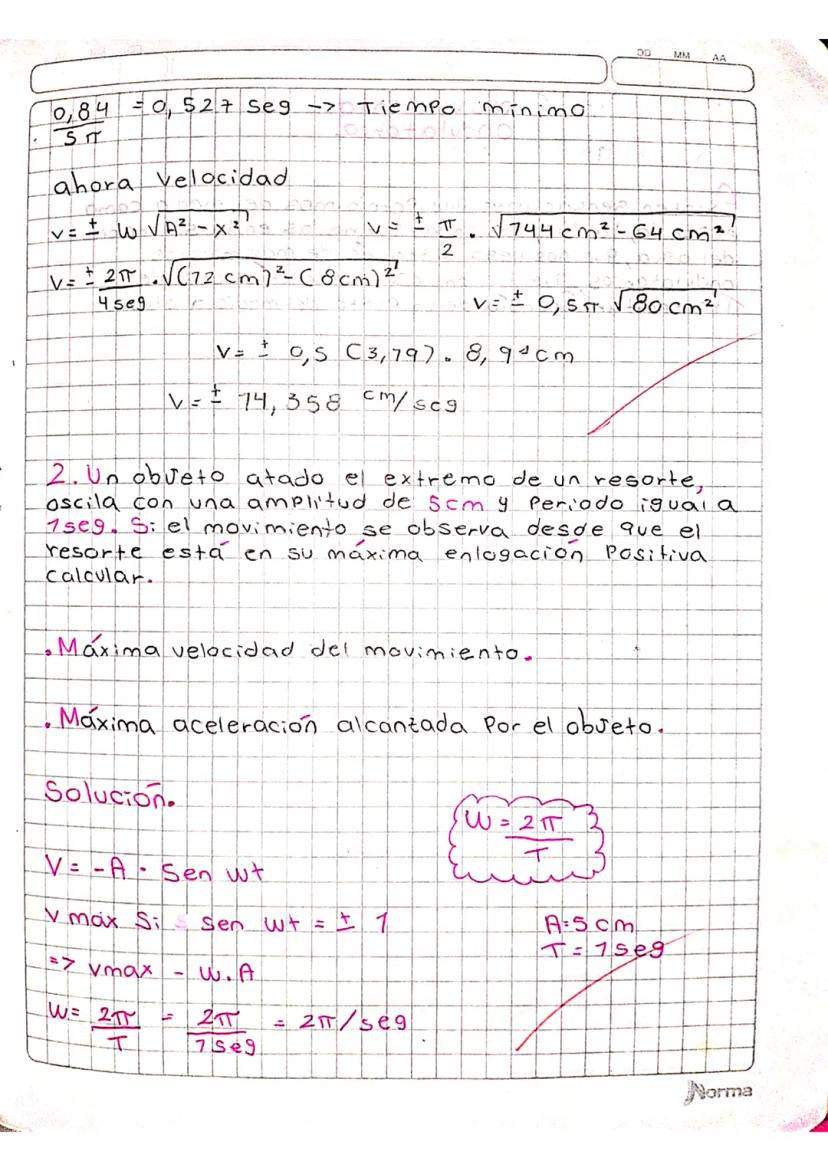 DD MM AA
0,84/5π = 0,527 seg -> tiempo mínimo
ahora velocidad
v = ± W √A² - x²
v = ± π/2 . √144 cm² - 64 cm²
v = ± 2π/4seg . √(12 cm)² - (8cm)²
v = ± 0,5π √80 cm²
v = ± 0,5 (3,14) . 8,94 cm
v = ± 14,358 cm/seg
2. Un objeto atado el extremo de un resorte,
oscila con una amplitud de 5cm y Periodo igual a
1seg. Si el movimiento se observa desde que el
resorte está en su máxima enlogación Positiva
calcular.
.Máxima velocidad del movimiento.
.Máxima aceleración alcantada Por el objeto.
Solución.
W = 2π/T
V = -A . Sen wt
V máx Si sen wt = ± 1
A=5 cm
T = 1seg
=> vmax - W.A
W = 2π/T = 2π/1seg = 2π/seg
Norma